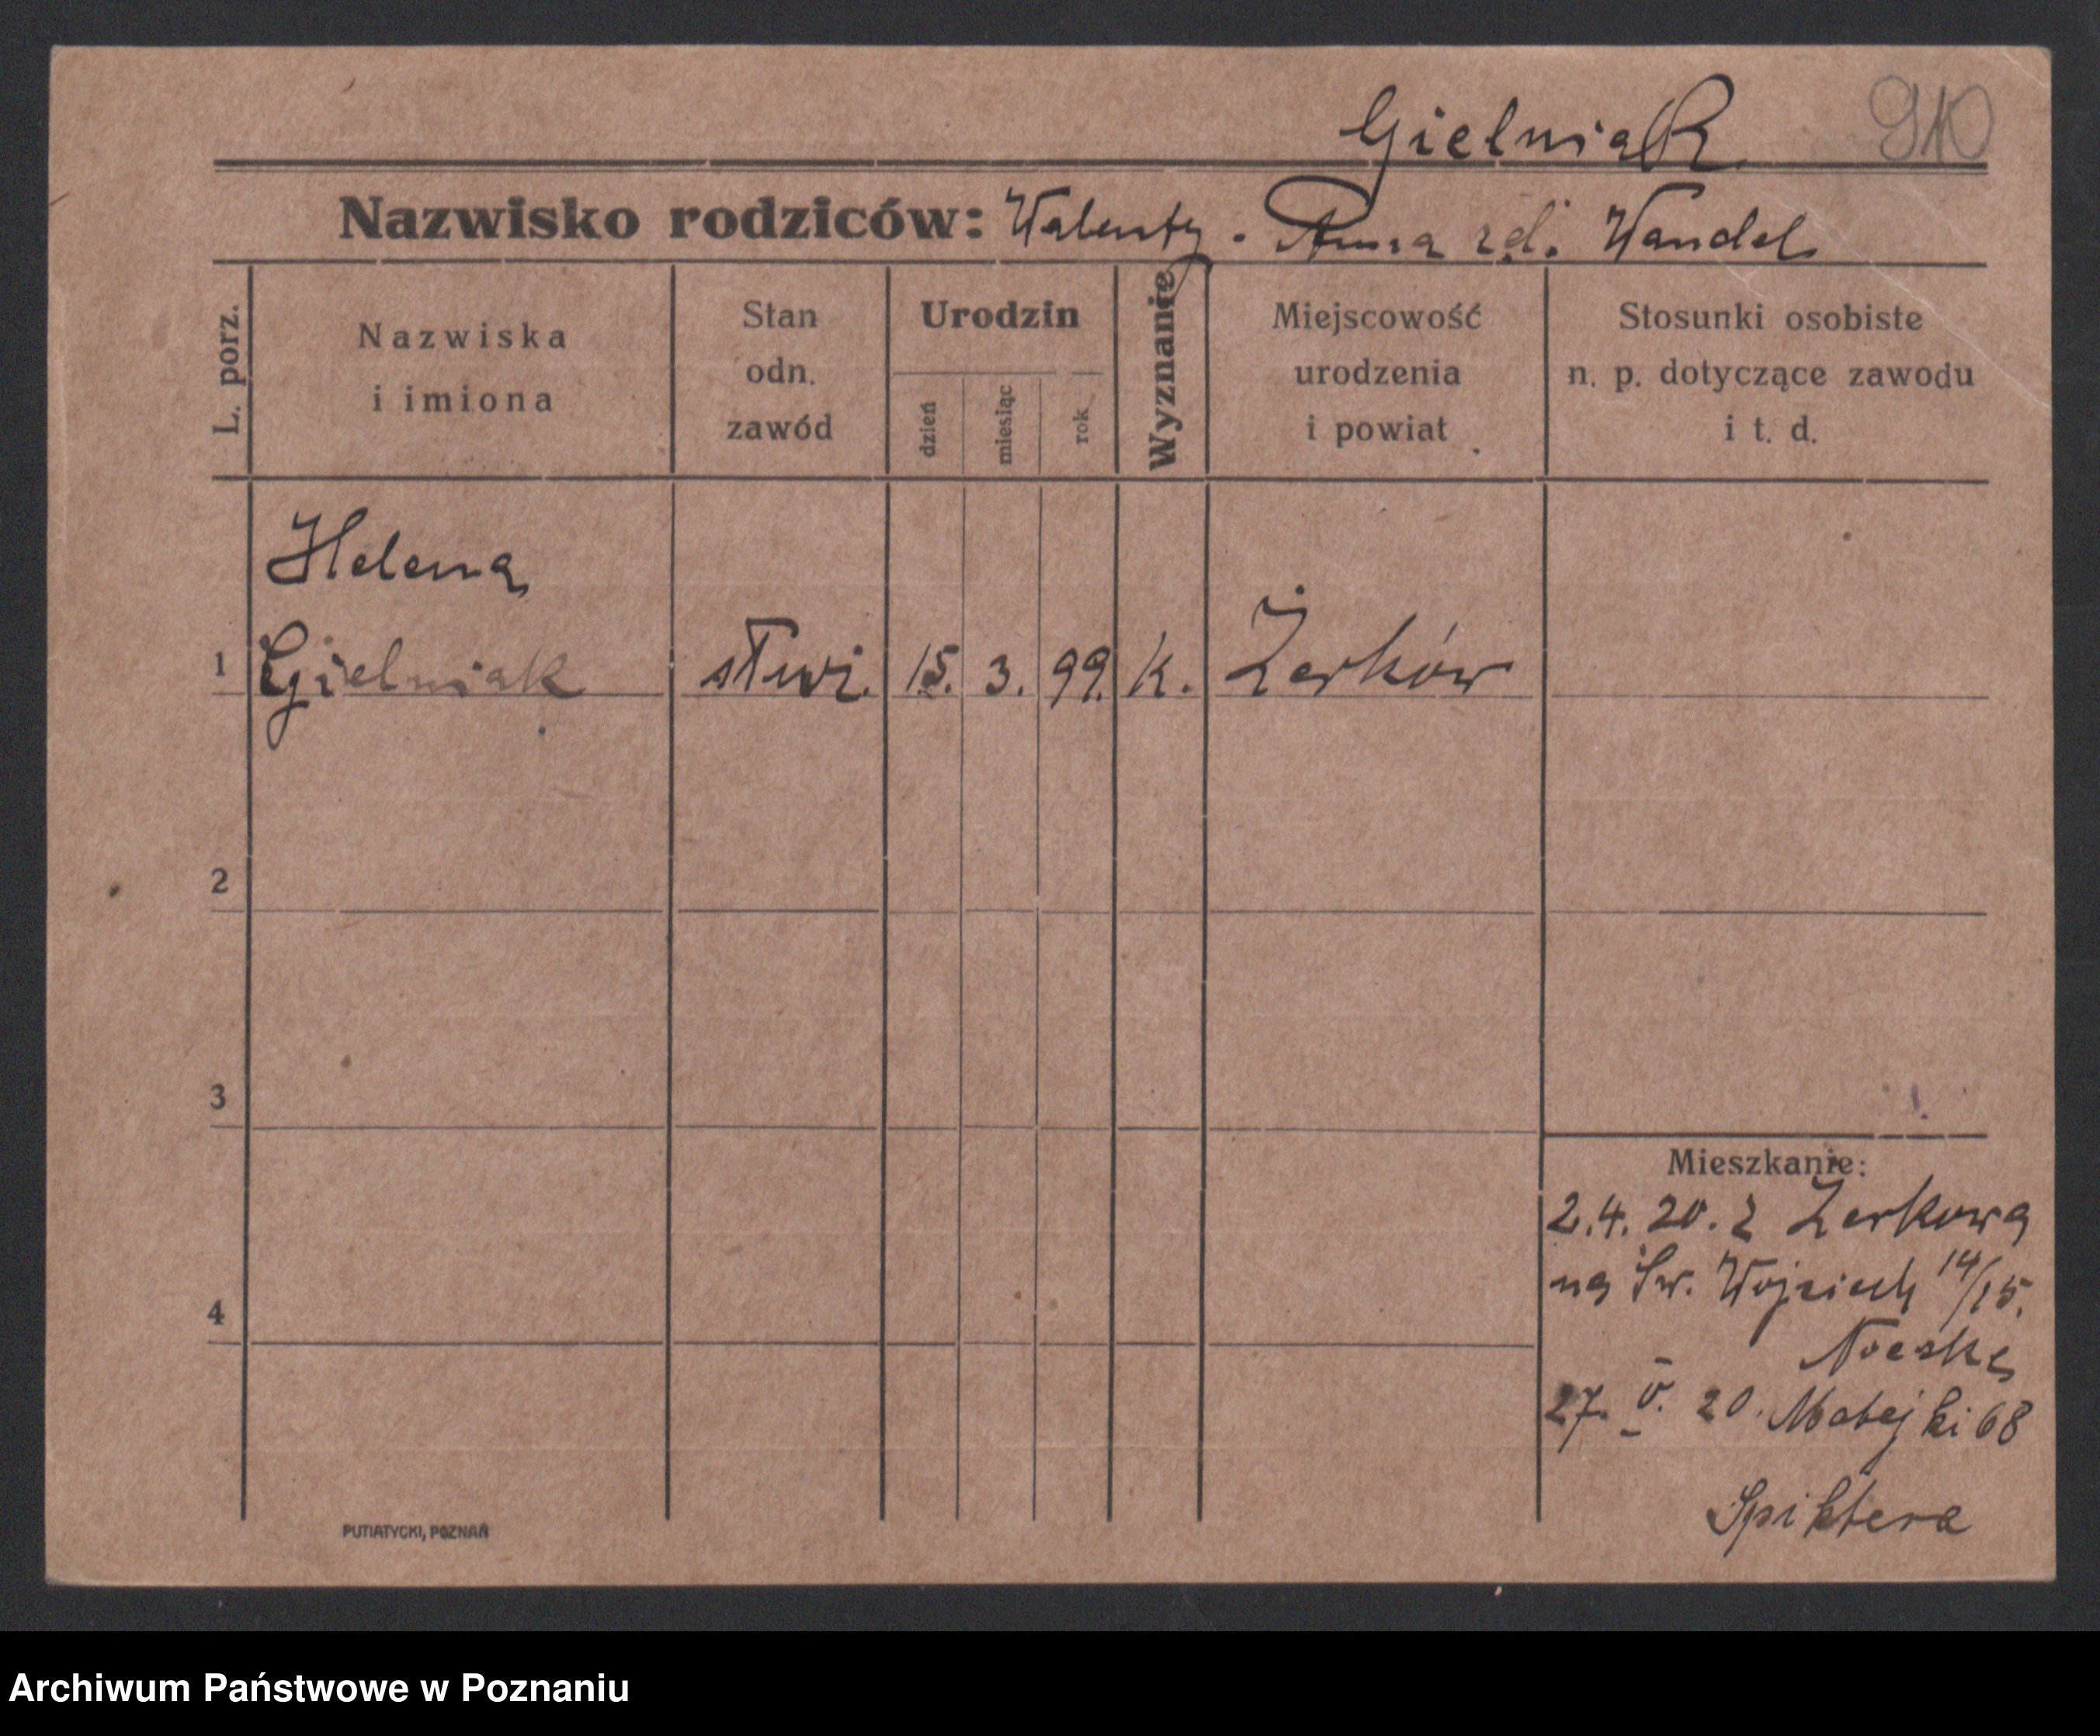 Gielniak 910
Nazwisko rodziców: Walenty - Anna zd. Wandel
L. porz.
Nazwiska
i imiona
Stan
odn.
zawód
Urodzin
dzień
miesiąc
rok
Wyznanie
Miejscowość
urodzenia
i powiat
Stosunki osobiste
n. p. dotyczące zawodu
i t. d.
Helena
1 Gielniak służ. 15. 3. 99. k. Żerków
2
3
4
Mieszkanie:
2.4. 20. z Żerkowa
na Św. Wojciech 14/15.
27. V. 20. Matejki 68
PUTIATYCKI, POZNAŃ
Archiwum Państwowe w Poznaniu